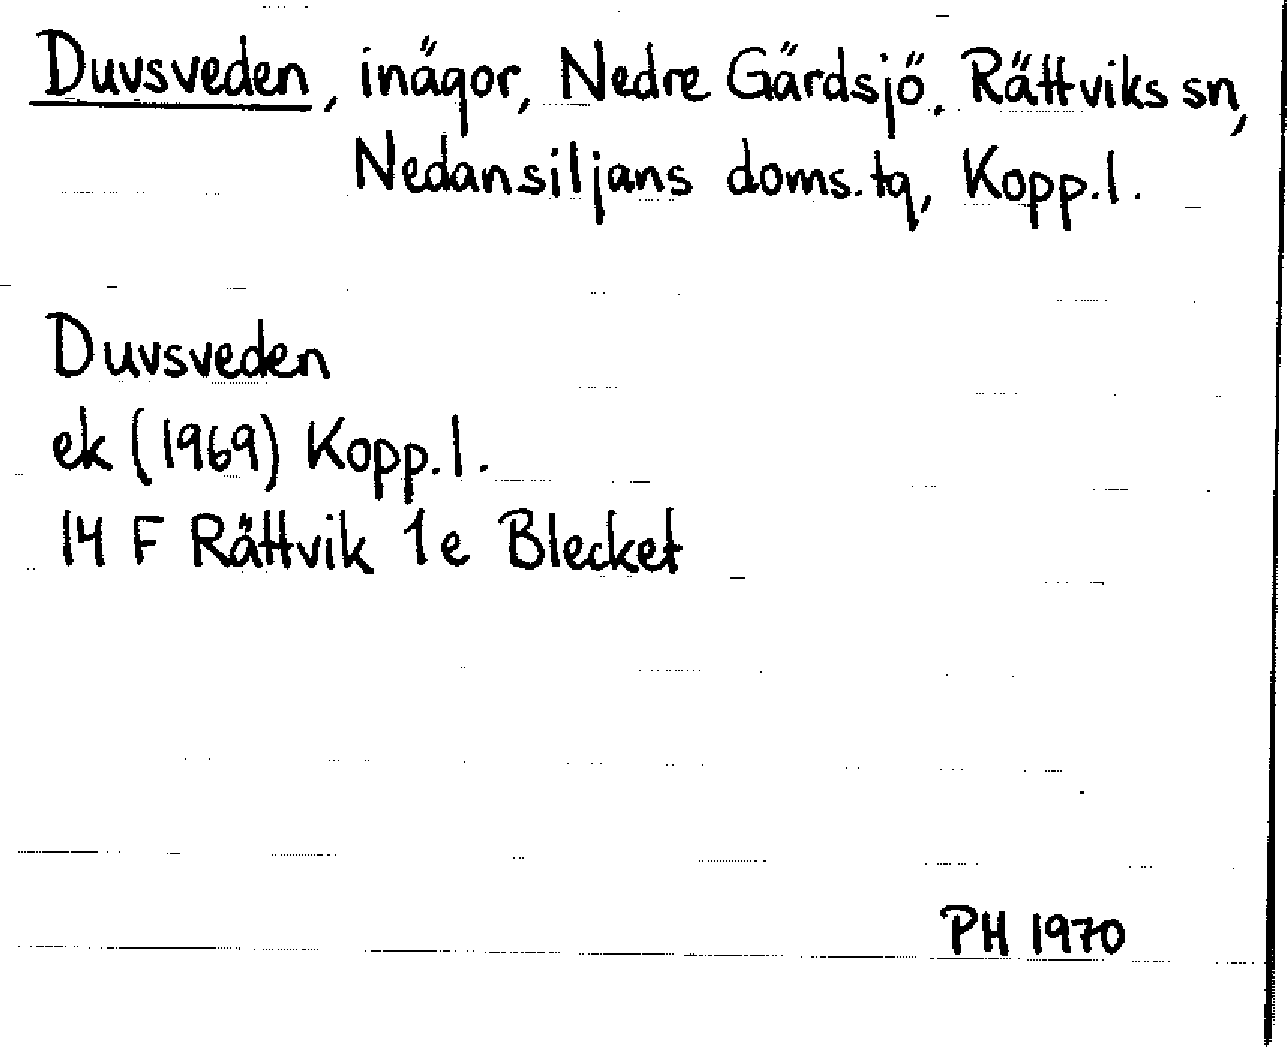 Duvsveden, inägor, Nedre Gärdsjö. Rättviks sn,
Nedansiljans doms. tg, Kopp.l.
Duvsveden
ek (1969) Kopp.l.
14 F Rättvik 1e Blecket
PH 1970